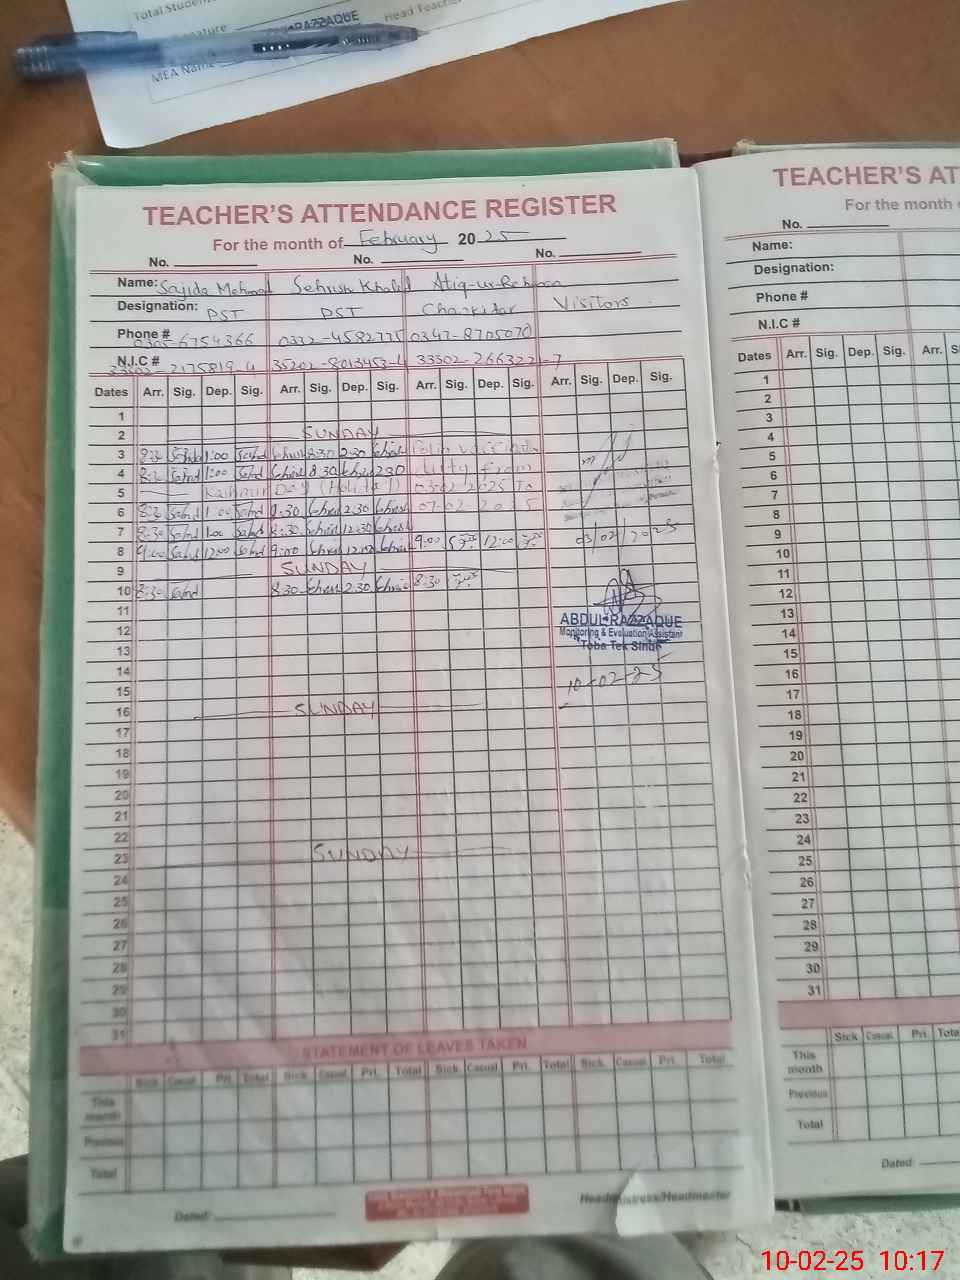 Total Students
Head Teacher
RAZZAQUE
MEA Name
TEACHER'S ATTENDANCE REGISTER
For the month of February 2025
No. No. No.
Name: Sajida Mehmood Sehrish Khalid Atiq-ur-Rehman
Designation: PST PST Chowkidar Visitors
Phone # 0305-6754366 0332-4582775 0347-8705070
N.I.C # 33302-2175819-4 35202-8013453-4 33302-2663221-7
Dates Arr. Sig. Dep. Sig. Arr. Sig. Dep. Sig. Arr. Sig. Dep. Sig. Arr. Sig. Dep. Sig.
1
2 SUNDAY
3 8:30 1:00 8:30 2:30 Polio vaccination
4 8:30 1:00 8:30 2:30 duty from
5 Kashmir Day (Holiday) 03-02-2025 To
6 8:30 1:00 8:30 2:30 07-02-2025
7 8:30 1:00 8:30 12:30
8 9:00 12:00 9:00 12:00 9:00 12:00 03/02/2025
9 SUNDAY
10 8:30 8:30 2:30 8:30
11
ABDUL RAZZAQUE
12
Monitoring & Evaluation Assistant
13
Toba Tek Singh
14
15 10-02-25
16 SUNDAY
17
18
19
20
21
22
23 SUNDAY
24
25
26
27
28
29
30
31
STATEMENT OF LEAVES TAKEN
Sick Casual Pri. Total Sick Casual Pri. Total Sick Casual Pri. Total Sick Casual Pri. Total
This month
Previous
Total
Dated:
Headmistress/Headmaster
TEACHER'S AT
For the month
No.
Name:
Designation:
Phone #
N.I.C #
Dates Arr. Sig. Dep. Sig. Arr.
1
2
3
4
5
6
7
8
9
10
11
12
13
14
15
16
17
18
19
20
21
22
23
24
25
26
27
28
29
30
31
Sick Casual Pri. Total
This month
Previous
Total
Dated:
10-02-25 10:17